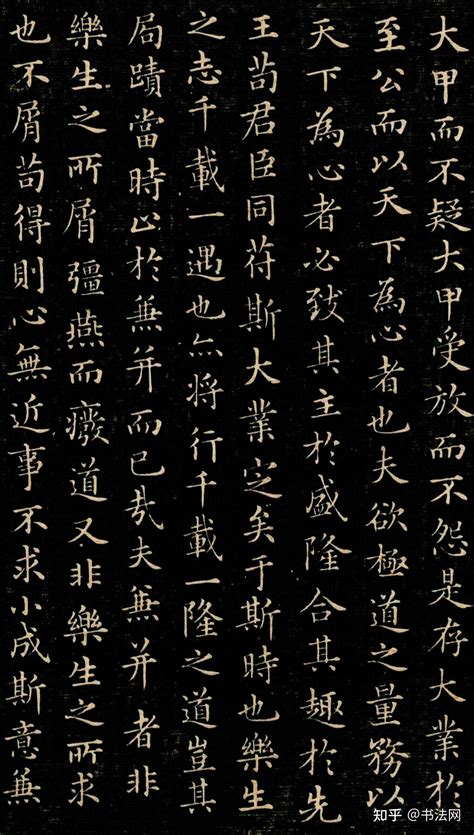 大甲而不疑大甲受放而不怨是存大業於
至公而以天下為心者也夫欲極道之量務以
天下為心者必致其主於盛隆合其趣於先
王茍君臣同苻斯大業定矣于斯時也樂生
之志千載一遇也亦将行千載一隆之道豈其
局蹟當時止於兼并而已哉夫兼并者非
樂生之所屑彊燕而癈道又非樂生之所求
也不屑茍得則心無近事不求小成斯意兼
知乎 @书法网